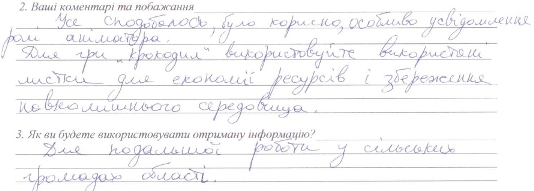 2. Ваші коментарі та побажання
Усе сподобалось, було корисно, особливо усвідомлення
ролі аніматора.
Для гри „Крокодил" використовуйте використані
листки для економії ресурсів і збереження
навколишнього середовища.
3. Як ви будете використовувати отриману інформацію?
Для подальшої роботи у сільських
громадах області.